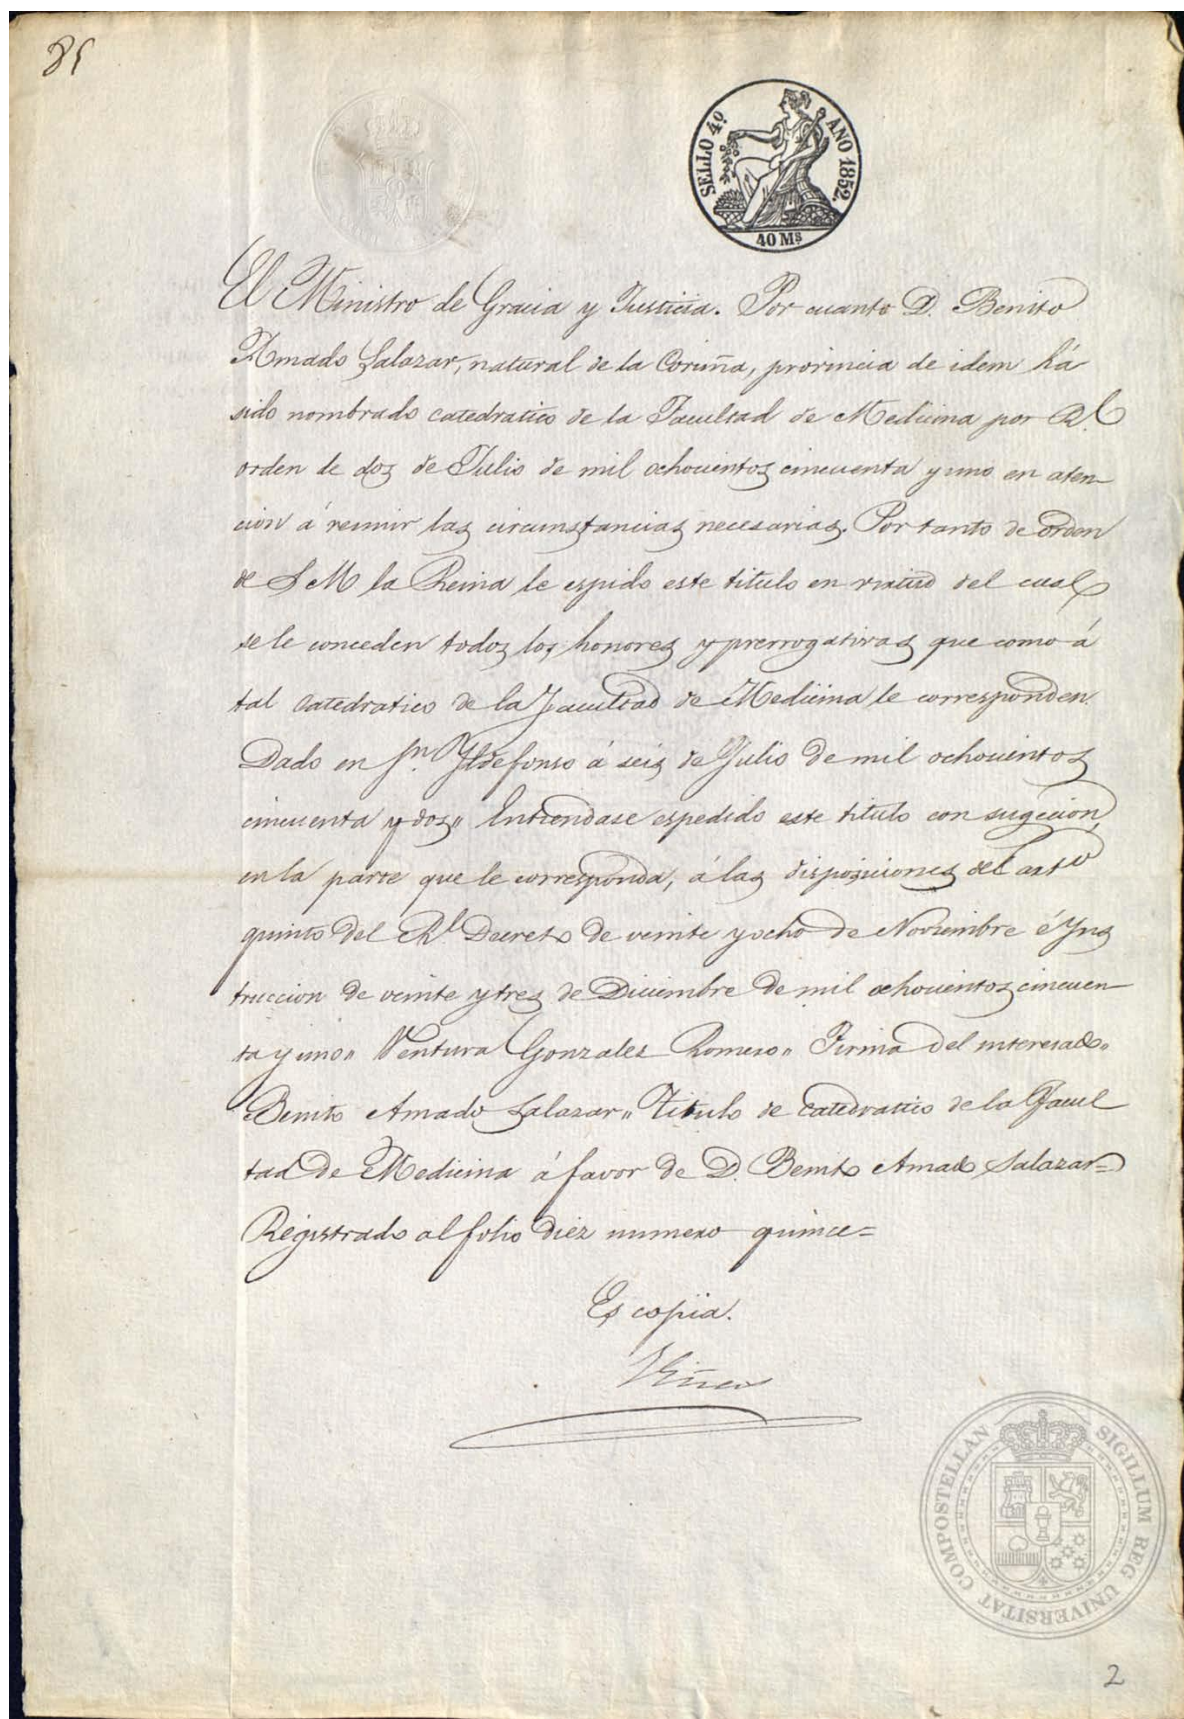 85
SELLO 4º. AÑO 1852.
40 Ms
El Ministro de Gracia y Justicia. Por cuanto D. Benito
Amado Salazar, natural de la Coruña, provincia de idem há
sido nombrado catedratico de la Facultad de Medicina por Rl.
orden de dos de Julio de mil ochocientos cincuenta y uno en aten-
cion á reunir las circunstancias necesarias. Por tanto de orden
de S M la Reina le espido este titulo en virtud del cual
se le conceden todos los honores y prerrogativas que como á
tal catedratico de la Facultad de Medicina le corresponden.
Dado en Sn. Yldefonso á seis de Julio de mil ochocientos
cincuenta y dos„ Entiendase espedido este titulo con sugecion,
en la parte que le corresponda, á las disposiciones del arto
quinto del Rl. Decreto de veinte y ocho de Noviembre é Yns
truccion de veinte y tres de Diciembre de mil ochocientos cincuen-
ta y uno„ Ventura Gonzales Romero„ Firma del interesado„
Benito Amado Salazar„ Titulo de catedratico de la Facul
tad de Medicina á favor de D. Benito Amado Salazar=
Registrado al folio diez numero quince=
Es copia.
Viñas
SIGILLUM REG UNIVERSITAT COMPOSTELLAN
2